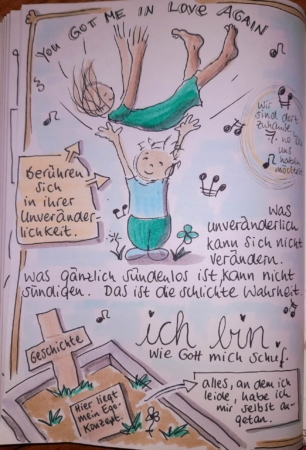 YOU GOT ME IN LOVE AGAIN
Wir
sind dort
zuhause,
wo
uns
haben
möchte
Berühren
sich
in ihrer
Unveränder-
lichkeit.
Was
unveränderlich
ist, kann sich nicht
verändern.
Was gänzlich sündenlos ist, kann nicht
sündigen. Das ist die schlichte Wahrheit.
ich bin
wie Gott mich schuf.
Geschichte
Hier liegt
mein Ego-
Konzept.
alles, an dem ich
leide, habe ich
mir selbst an-
getan.